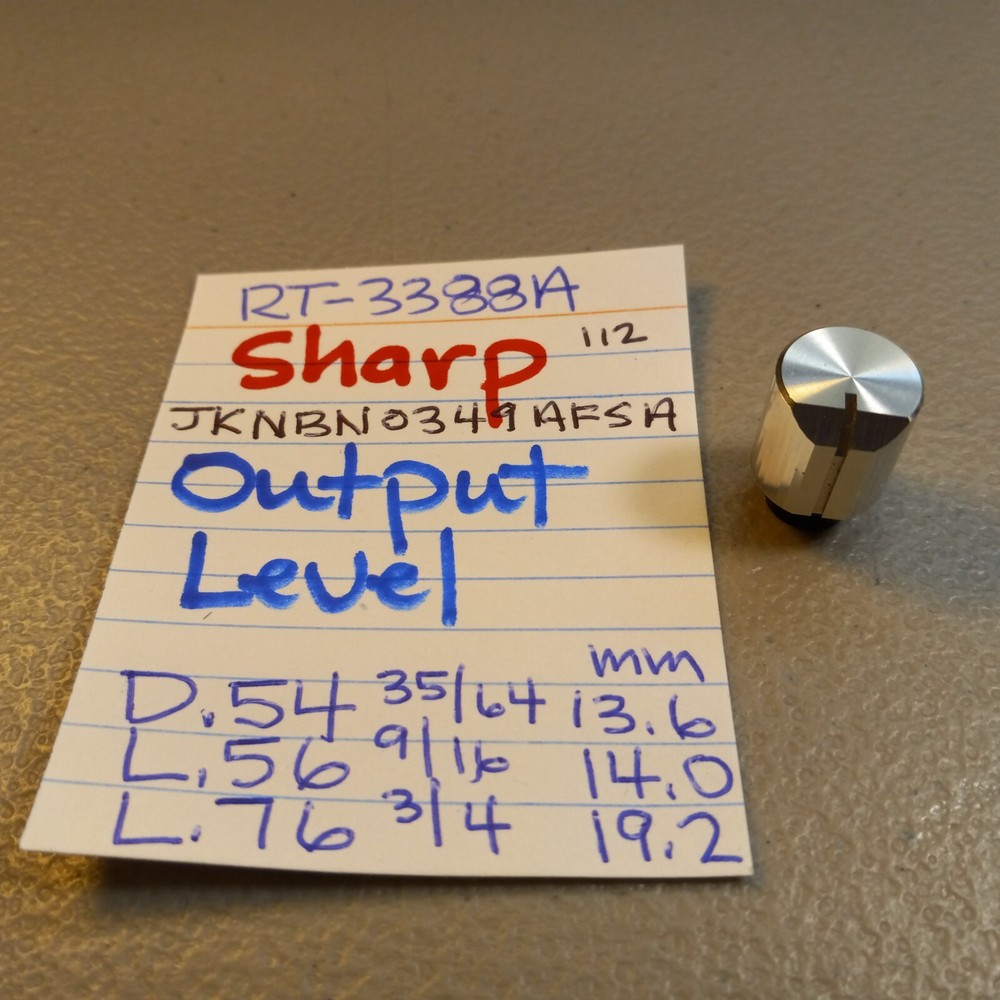 RT-3388A
Sharp 112
JKNBN0349AFSA
Output
Level
mm
D.54 35/64 13.6
L.56 9/16 14.0
L.76 3/4 19.2